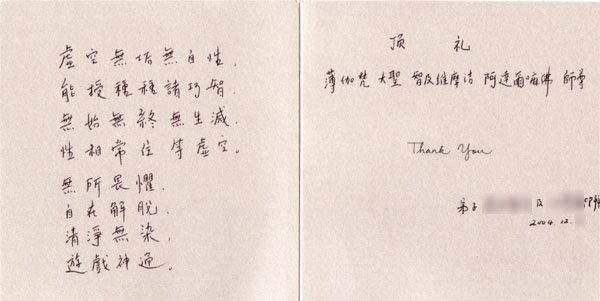 虛空無垢無自性，
能授種種諸巧智。
無始無終無生滅，
性相常住等虛空。
無所畏懼，
自在解脫，
清淨無染，
遊戲神通。
顶 礼
薄伽梵 大聖 智及維摩詰 阿達爾嘛佛 師尊
Thank You
弟子 及
2004.12.